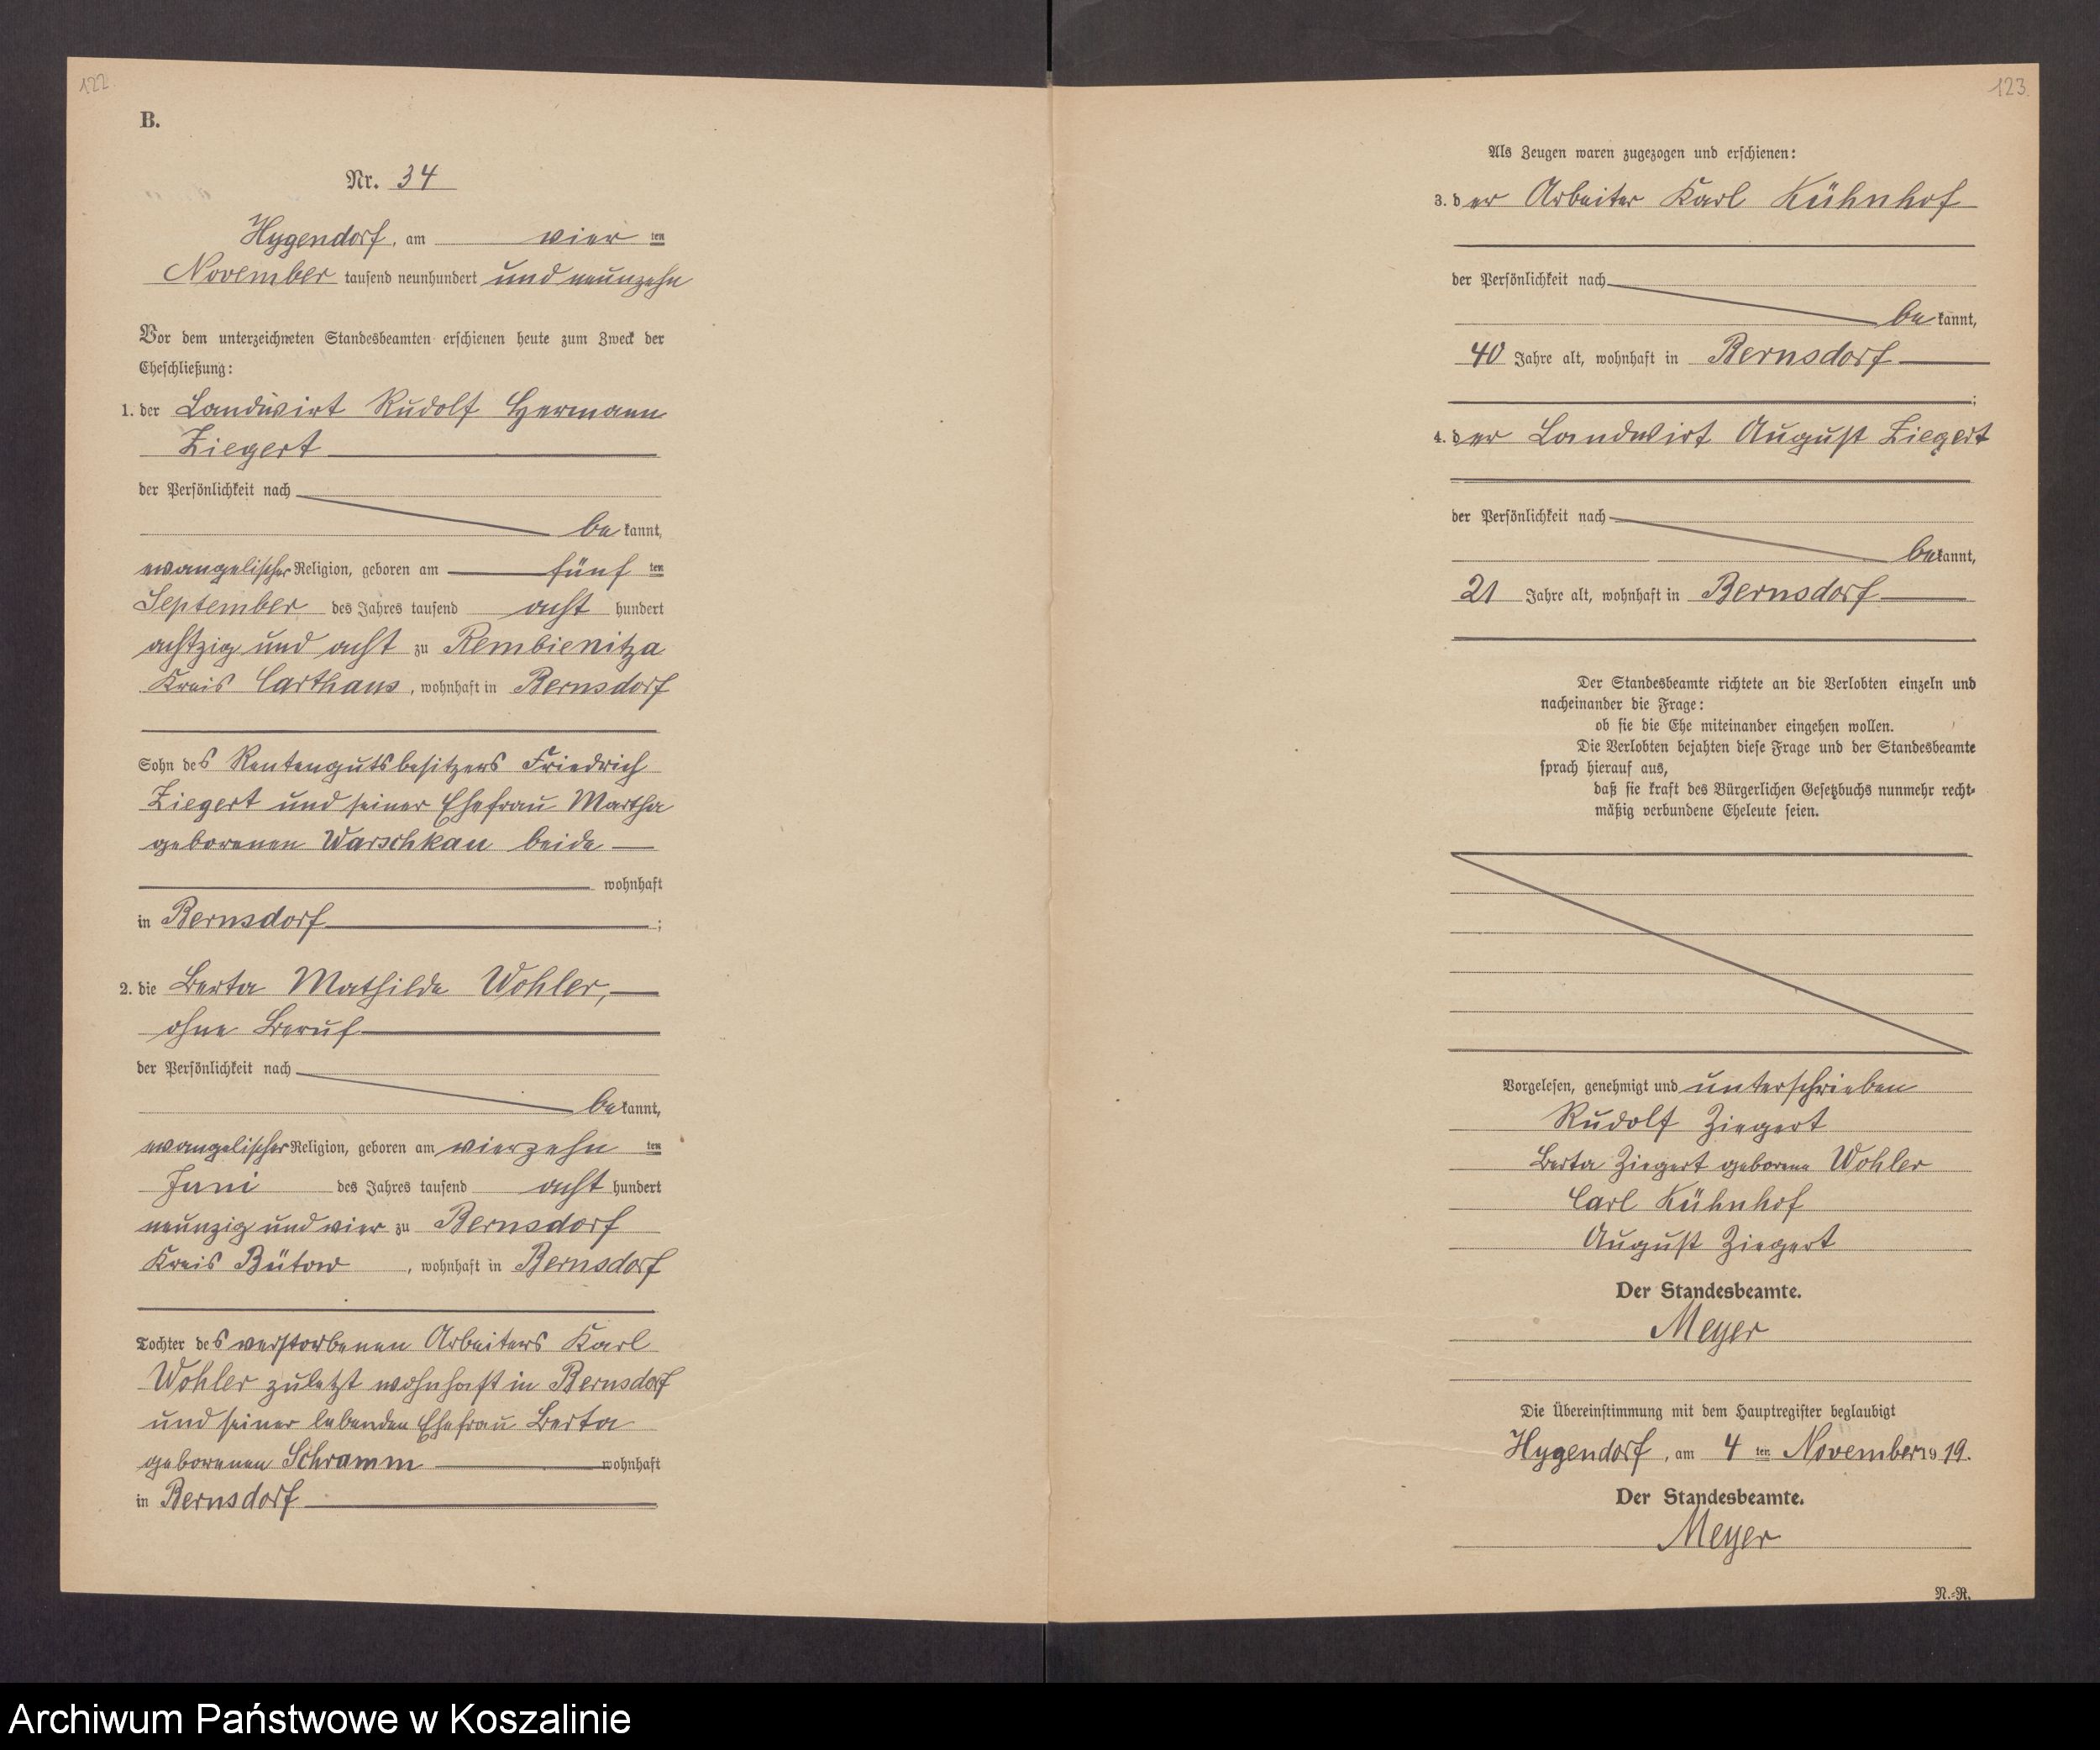 122.
B.
Nr. 34
Hygendorf, am vier ten
November tausend neunhundert und neunzehn
Vor dem unterzeichneten Standesbeamten erschienen heute zum Zweck der
Eheschließung:
1. der Landwirt Rudolf Hermann
Ziegert
der Persönlichkeit nach
be kannt,
evangelischer Religion, geboren am fünf ten
September des Jahres tausend acht hundert
achtzig und acht zu Rembienitza
Kreis Carthaus, wohnhaft in Bernsdorf
Sohn des Rentengutsbesitzers Friedrich
Ziegert und seiner Ehefrau Martha
geborenen Warschkau beide
wohnhaft
in Bernsdorf ;
2. die Berta Mathilde Wohler,
ohne Beruf
der Persönlichkeit nach
be kannt,
evangelischer Religion, geboren am vierzehn ten
Juni des Jahres tausend acht hundert
neunzig und vier zu Bernsdorf
Kreis Bütow, wohnhaft in Bernsdorf
Tochter des verstorbenen Arbeiters Karl
Wohler zuletzt wohnhaft in Bernsdorf
und seiner lebenden Ehefrau Berta
geborenen Schramm wohnhaft
in Bernsdorf
123.
Als Zeugen waren zugezogen und erschienen:
3. der Arbeiter Karl Kühnhof
der Persönlichkeit nach
be kannt,
40 Jahre alt, wohnhaft in Bernsdorf
;
4. der Landwirt August Ziegert
der Persönlichkeit nach
be kannt,
21 Jahre alt, wohnhaft in Bernsdorf
Der Standesbeamte richtete an die Verlobten einzeln und
nacheinander die Frage:
ob sie die Ehe miteinander eingehen wollen.
Die Verlobten bejahten diese Frage und der Standesbeamte
sprach hierauf aus,
daß sie kraft des Bürgerlichen Gesetzbuchs nunmehr recht-
mäßig verbundene Eheleute seien.
Vorgelesen, genehmigt und unterschrieben
Rudolf Ziegert
Berta Ziegert geborene Wohler
Carl Kühnhof
August Ziegert
Der Standesbeamte.
Meyer
Die Übereinstimmung mit dem Hauptregister beglaubigt
Hygendorf, am 4 ten November 1919.
Der Standesbeamte.
Meyer
N.-R.
Archiwum Państwowe w Koszalinie